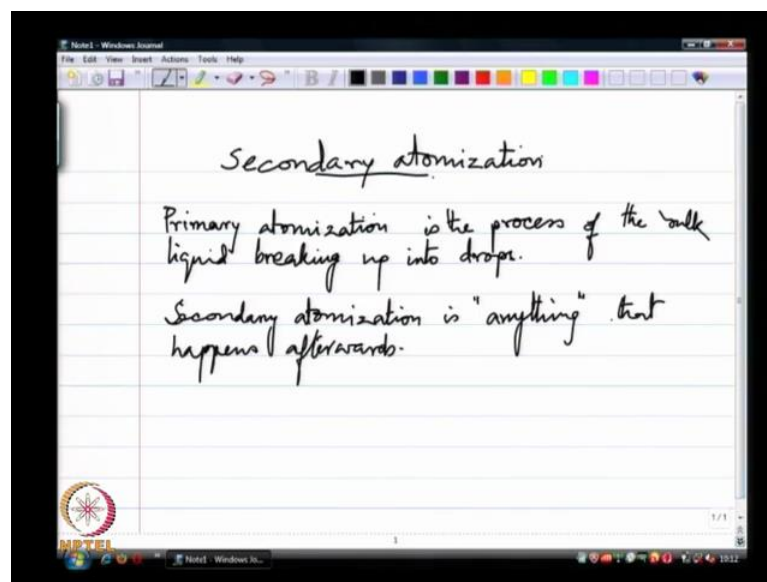 Note1 - Windows Journal
File Edit View Insert Actions Tools Help
B I
Secondary atomization
Primary atomization is the process of the bulk
liquid breaking up into drops.
Secondary atomization is "anything" that
happens afterwards.
1/1
1
NPTEL
Note1 - Windows Jo...
10:12